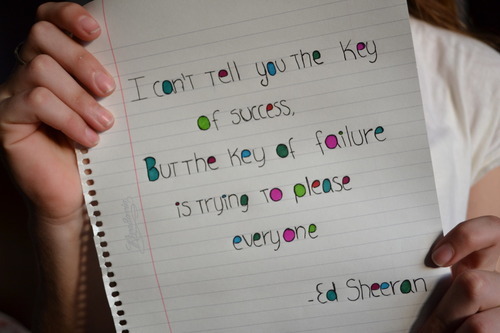 I can't tell you the key
of success,
But the key of failure
is trying to please
everyone
-Ed Sheeran